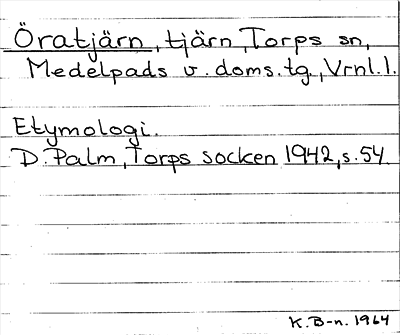 Öratjärn, tjärn, Torps sn,
Medelpads v. doms. tg., Vrnl. l.
Etymologi.
D. Palm, Torps socken 1942, s. 54
K. B-n. 1964